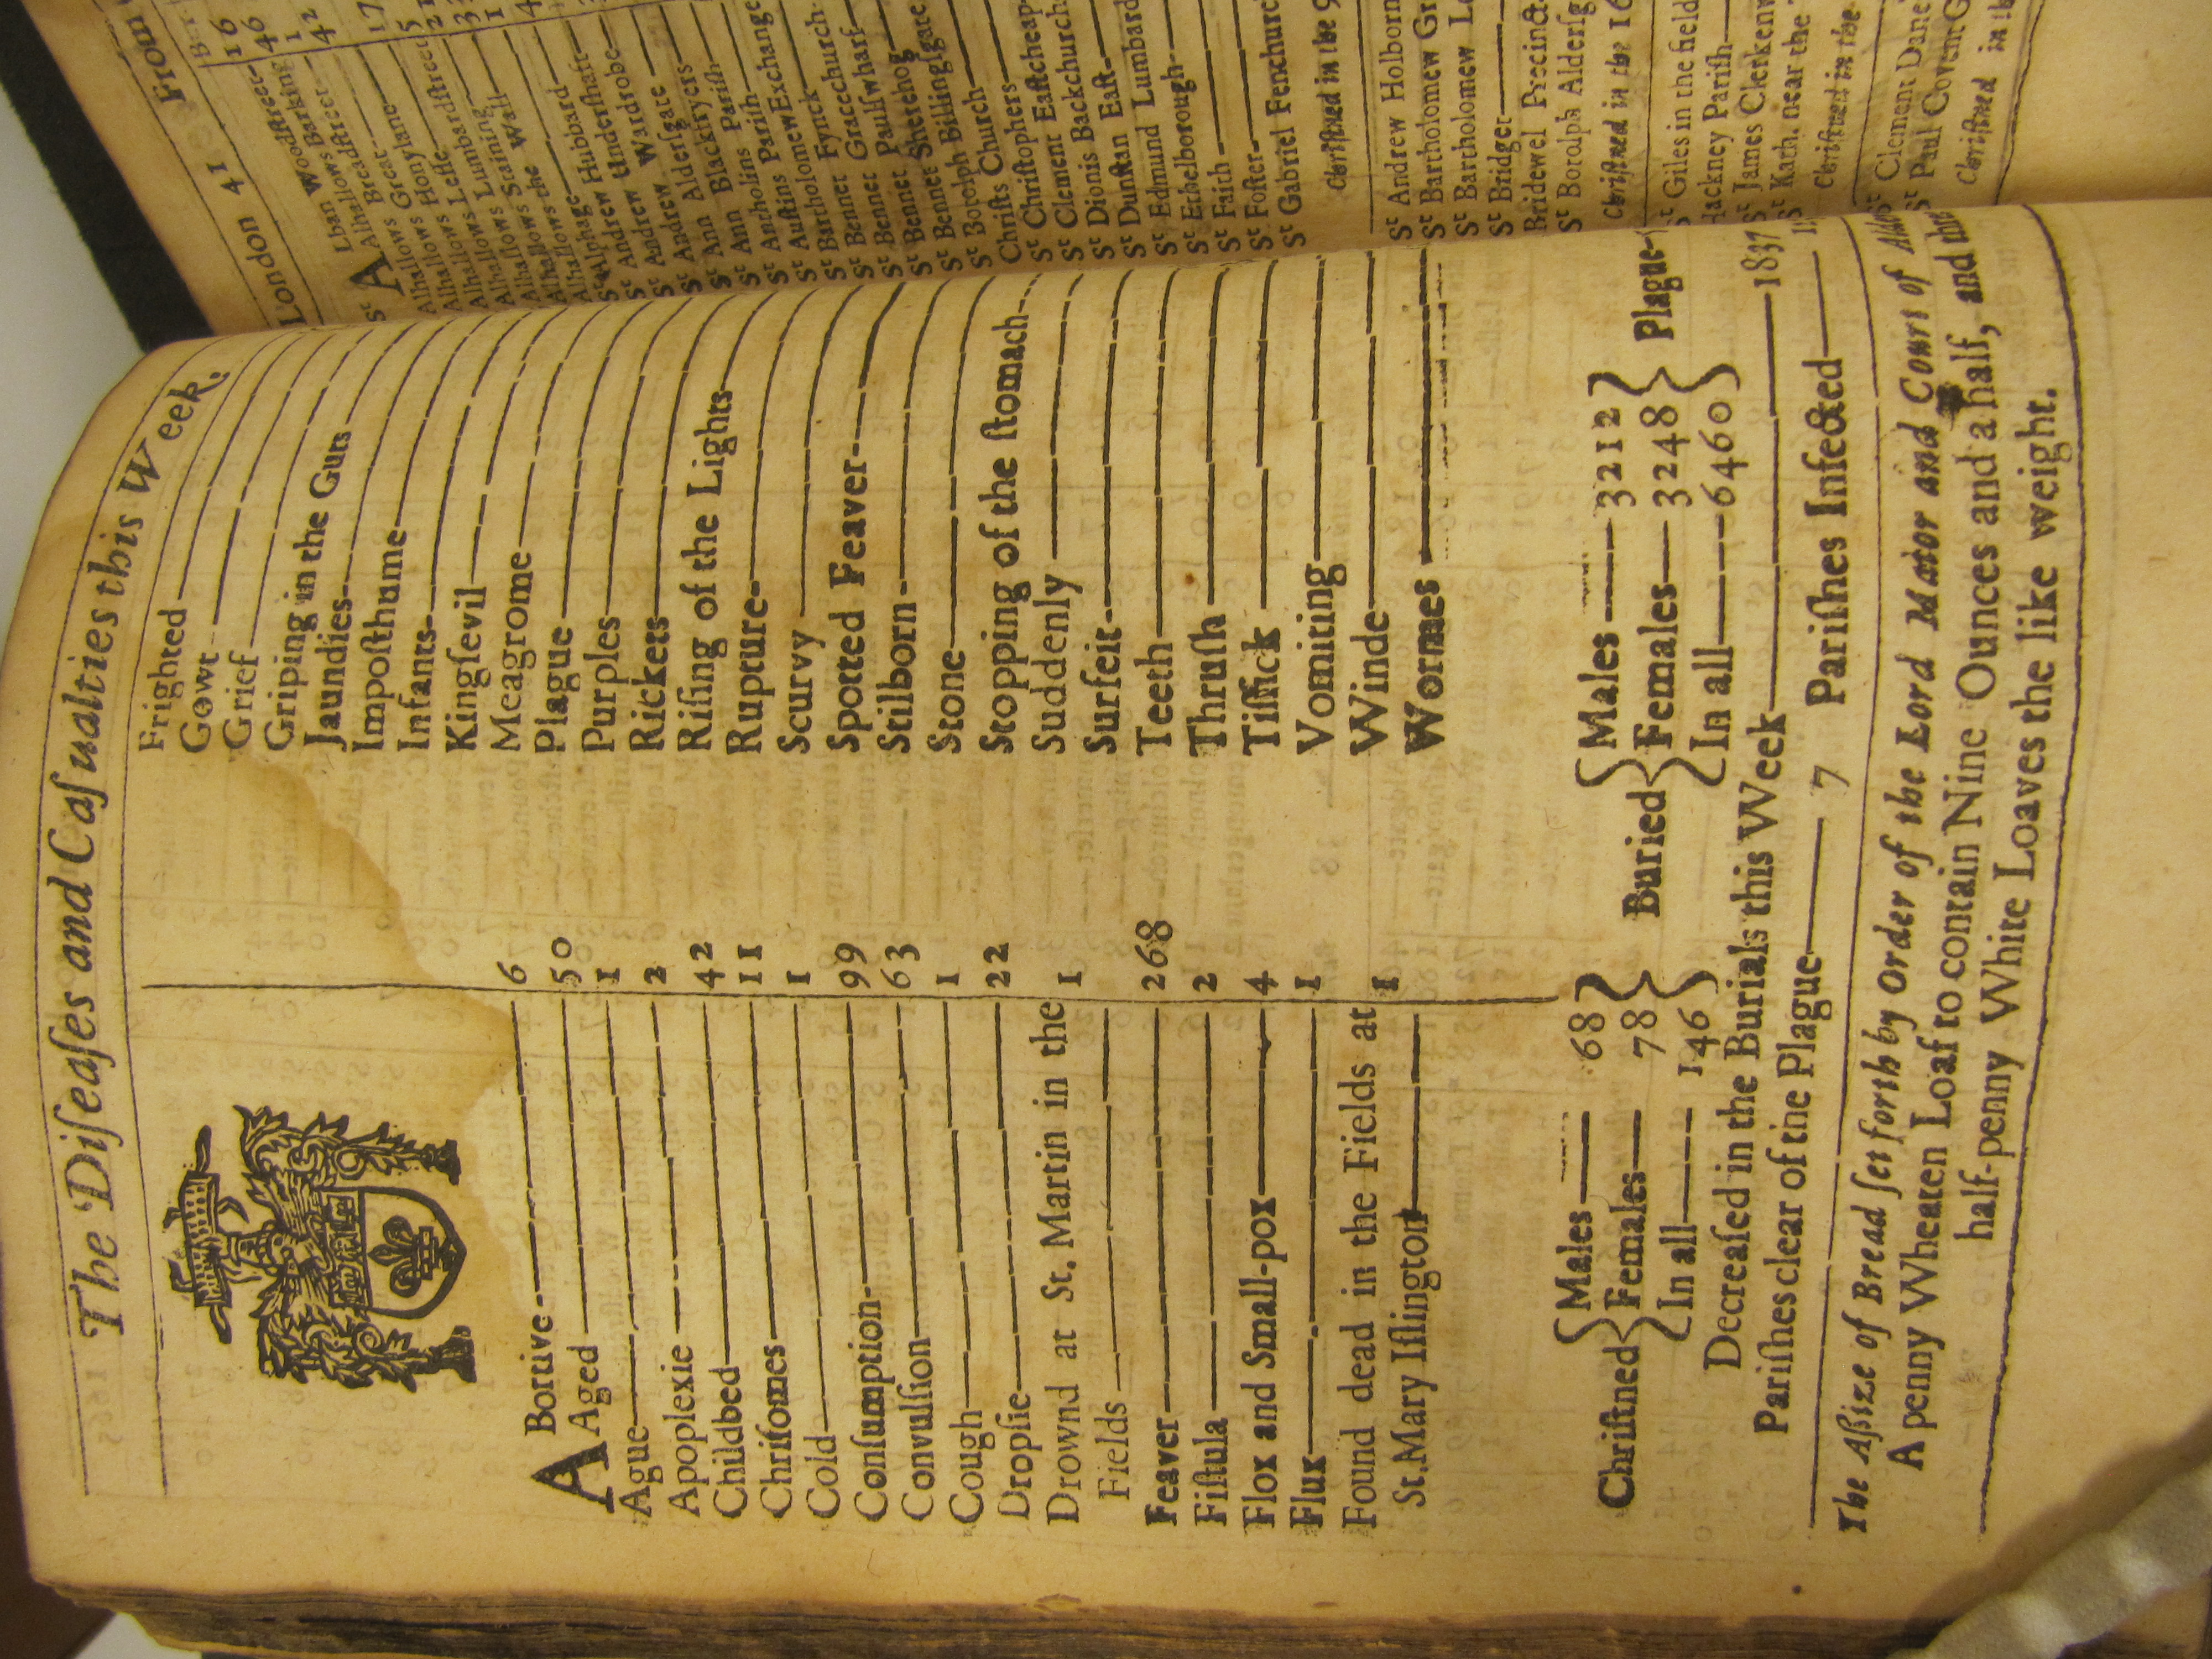 The Diſeaſes and Caſualties this Week.
ABortive 6
Aged 50
Ague 1
Apoplexie 2
Childbed 42
Chriſomes 11
Cold 1
Conſumption 99
Convulſion 63
Cough 1
Dropſie 22
Drownd at St. Martin in the
Fields 1
Feaver 268
Fiſtula 2
Flox and Small-pox 4
Flux 1
Found dead in the Fields at
St. Mary Iſlington 1
Frighted
Gowt
Grief
Griping in the Guts
Jaundies
Impoſthume
Infants
Kingſevil
Meagrome
Plague
Purples
Rickets
Riſing of the Lights
Rupture
Scurvy
Spotted Feaver
Stilborn
Stone
Stopping of the ſtomach
Suddenly
Surfeit
Teeth
Thruſh
Tiſſick
Vomiting
Winde
Wormes
Chriſtned
Males 68
Females 78
In all 146
Buried
Males 3212
Females 3248
In all 6460
Plague
Decreaſed in the Burials this Week 1837
Pariſhes clear of the Plague 7 Pariſhes Infected
The Aſsize of Bread ſet forth by Order of the Lord Maior and Court of
A penny Wheaten Loaf to contain Nine Ounces and a half, and
half-penny White Loaves the like weight.
London 41 From
St ALban Woodſtreet 16
Alhallows Barking 46
Alhallows Breadſtreet 1
Alhallows Great 42
Alhallows Honylane
Alhallows Leſſe
Alhallows Lumbardſtreet
Alhallows Staining
Alhallows the Wall
Alphage
St Andrew Hubbard
St Andrew Underſhaft
St Andrew Wardrobe
St Ann Alderſgate
St Ann Blackfryers
St Antholins Pariſh
St Auſtins Pariſh
St Bartholomew Exchange
St Bennet Fynck
St Bennet Gracechurch
St Bennet Paulſwharf
St Bennet Sherehog
St Botolph Billingſgate
Chriſts Church
St Chriſtophers
St Clement Eaſtcheap
St Dionis Backchurch
St Dunſtan Eaſt
St Edmund Lumbard
St Ethelborough
St Faith
St Foſter
St Gabriel Fenchurch
Chriſtned in the 9
St Andrew Holborn
St Bartholomew Gr
St Bartholomew Le
St Bridget
Bridewel Precinct
St Botolph Alderſg
Chriſtned in the 16
St Giles in the field
Hackney Pariſh
St James Clerkenw
St Kath. near the
Chriſtned in the
St Clement Dane
St Paul Covent G
Chriſtned in th